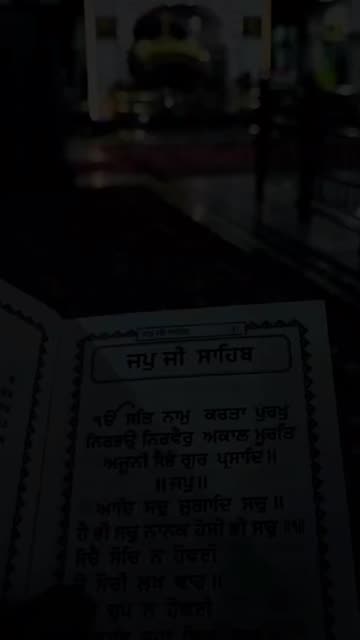 ਜਪੁ ਜੀ ਸਾਹਿਬ
ੴ ਸਤਿ ਨਾਮੁ ਕਰਤਾ ਪੁਰਖੁ
ਨਿਰਭਉ ਨਿਰਵੈਰੁ ਅਕਾਲ ਮੂਰਤਿ
ਅਜੂਨੀ ਸੈਭੰ ਗੁਰ ਪ੍ਰਸਾਦਿ॥
॥ਜਪੁ॥
ਆਦਿ ਸਚੁ ਜੁਗਾਦਿ ਸਚੁ॥
ਹੈ ਭੀ ਸਚੁ ਨਾਨਕ ਹੋਸੀ ਭੀ ਸਚੁ ॥੧॥
ਸੋਚੈ ਸੋਚਿ ਨ ਹੋਵਈ
ਜੇ ਸੋਚੀ ਲਖ ਵਾਰ॥
ਚੁਪ ਨ ਹੋਵਈ